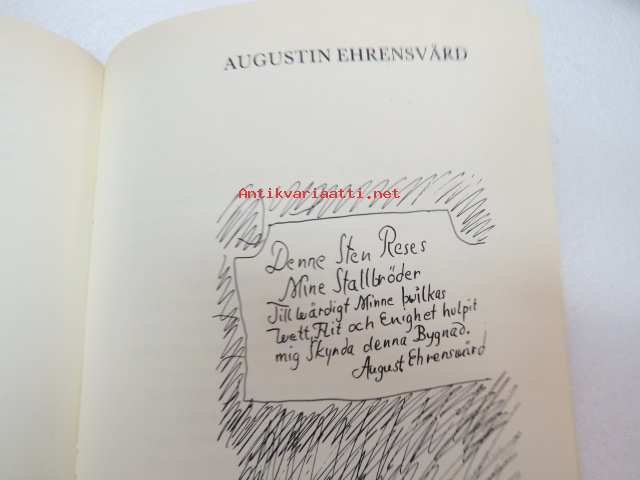 AUGUSTIN EHRENSVÄRD
Antikvariaatti.net
Denne Sten Reses
Mine Stallbröder
Till wärdigt Minne hwilkas
wett, Flit och Enighet hulpit
mig skynda denna Bygnad.
August Ehrenswärd